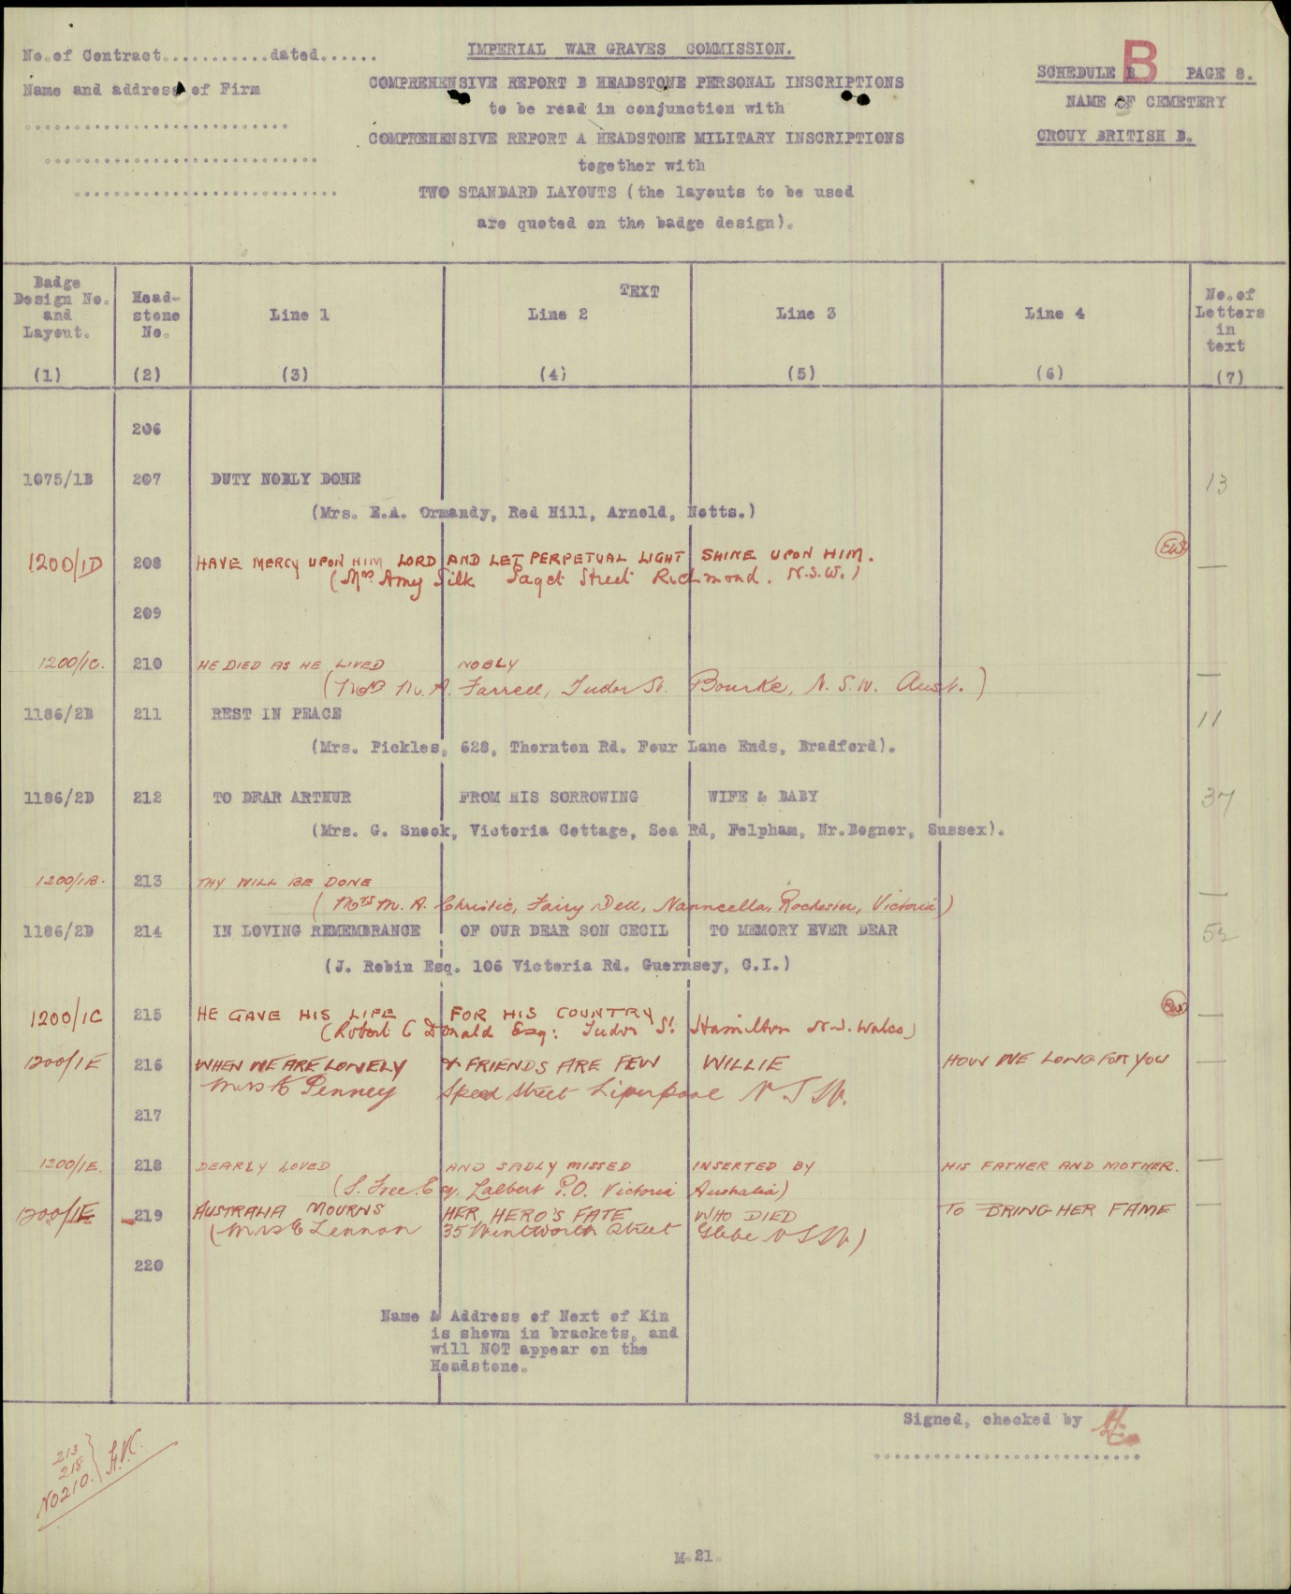 No.of Contract............dated......
Name and address of Firm
IMPERIAL WAR GRAVES COMMISSION.
COMPREHENSIVE REPORT B HEADSTONE PERSONAL INSCRIPTIONS
to be read in conjunction with
COMPREHENSIVE REPORT A HEADSTONE MILITARY INSCRIPTIONS
together with
TWO STANDARD LAYOUTS (the layouts to be used
are quoted on the badge design).
SCHEDULE B PAGE 8.
NAME OF CEMETERY
CROUY BRITISH B.
Badge Design No. and Layout.
Head-stone No.
TEXT
Line 1 Line 2 Line 3 Line 4
No.of Letters in text
(1) (2) (3) (4) (5) (6) (7)
206
1075/1B 207 DUTY NOBLY DONE 13
(Mrs. E.A. Ormandy, Red Hill, Arnold, Notts.)
1200/1D 208 HAVE MERCY UPON HIM LORD AND LET PERPETUAL LIGHT SHINE UPON HIM. —
(Mrs Amy Silk Paget Street Richmond. N.S.W.)
209
1200/1C. 210 HE DIED AS HE LIVED NOBLY —
(Mrs M. A. Farrell, Tudor St. Bourke, N.S.W. Aust.)
1186/2B 211 REST IN PEACE 11
(Mrs. Pickles, 628, Thornton Rd. Four Lane Ends, Bradford).
1186/2D 212 TO DEAR ARTHUR FROM HIS SORROWING WIFE & BABY 37
(Mrs. G. Snook, Victoria Cottage, Sea Rd, Felpham, Nr.Bognor, Sussex).
1200/1B. 213 THY WILL BE DONE —
(Mrs M. A. Christie, Fairy Dell, Nanneella, Rochester, Victoria)
1186/2D 214 IN LOVING REMEMBRANCE OF OUR DEAR SON CECIL TO MEMORY EVER DEAR 52
(J. Robin Esq. 106 Victoria Rd. Guernsey, C.I.)
1200/1C 215 HE GAVE HIS LIFE FOR HIS COUNTRY —
(Robert C Donald Esq: Tudor St Hamilton N.S. Wales)
1200/1E 216 WHEN WE ARE LONELY & FRIENDS ARE FEW WILLIE HOW WE LONG FOR YOU —
Mrs E Penney Speed Street Liverpool N S W.
217
1200/1E. 218 DEARLY LOVED AND SADLY MISSED INSERTED BY HIS FATHER AND MOTHER. —
(S. Free. Esq. Lalbert P.O. Victoria Australia)
1200/1E 219 AUSTRALIA MOURNS HER HERO'S FATE WHO DIED TO BRING HER FAME —
(Mrs E Lennon 35 Wentworth Street Glebe N S W)
220
Name & Address of Next of Kin
is shown in brackets, and
will NOT appear on the
Headstone.
Signed, checked by
213
218
No 210.
M.21.